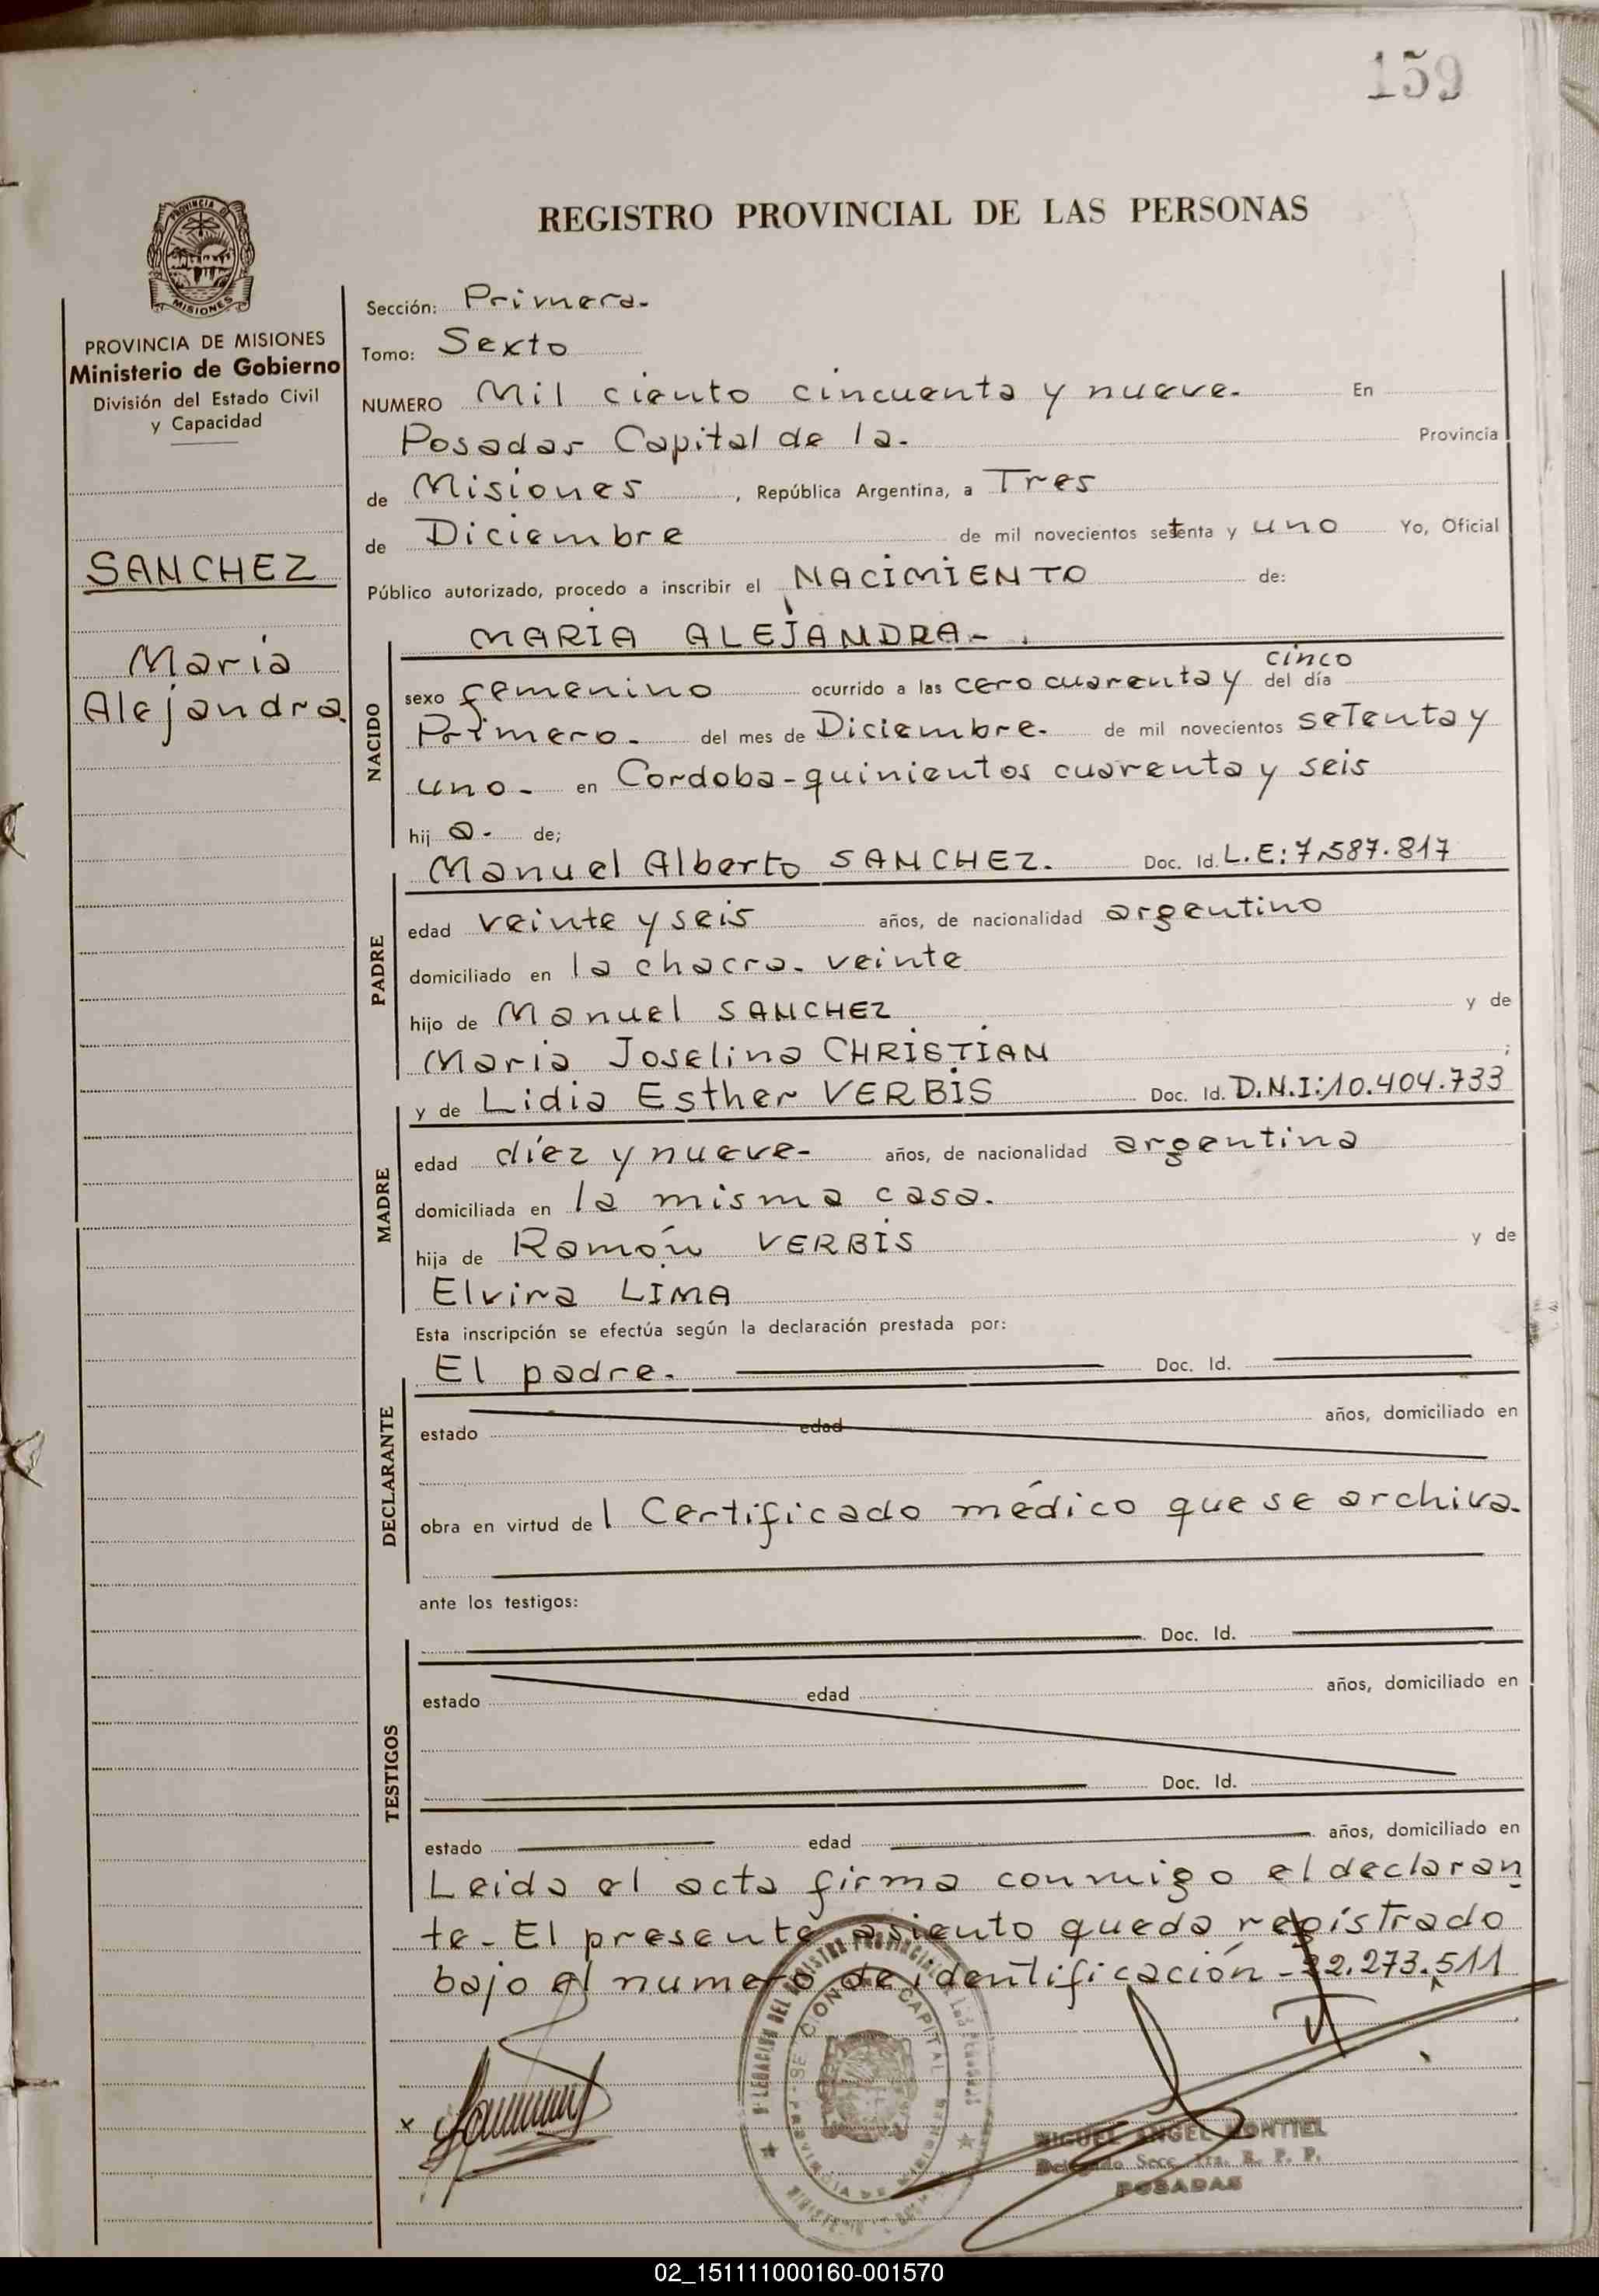 159
REGISTRO PROVINCIAL DE LAS PERSONAS
PROVINCIA DE
MISIONES
PROVINCIA DE MISIONES
Ministerio de Gobierno
División del Estado Civil
y Capacidad
SANCHEZ
Maria
Alejandra.
Sección: Primera-
Tomo: Sexto
NUMERO Mil ciento cincuenta y nueve- En
Posadas Capital de la- Provincia
de Misiones, República Argentina, a Tres
de Diciembre de mil novecientos setenta y uno Yo, Oficial
Público autorizado, procedo a inscribir el NACIMIENTO de:
MARIA ALEJANDRA-
cinco
NACIDO
sexo femenino ocurrido a las cero cuarenta y del día
Primero- del mes de Diciembre- de mil novecientos setenta y
uno- en Cordoba-quinientos cuarenta y seis
hij a- de;
Manuel Alberto SANCHEZ. Doc. Id. L.E:7.587.817
PADRE
edad veinte y seis años, de nacionalidad argentino
domiciliado en la chacra- veinte
hijo de Manuel SANCHEZ y de
Maria Joselina CHRISTIAN ;
y de Lidia Esther VERBIS Doc. Id. D.N.I:10.404.733
MADRE
edad díez y nueve- años, de nacionalidad argentina
domiciliada en la misma casa.
hija de Ramón VERBIS y de
Elvira LIMA
Esta inscripción se efectúa según la declaración prestada por:
El padre- Doc. Id.
DECLARANTE
estado edad años, domiciliado en
obra en virtud de l Certificado médico que se archiva-
ante los testigos:
Doc. Id.
TESTIGOS
estado edad años, domiciliado en
Doc. Id.
estado edad años, domiciliado en
Leida el acta firma conmigo el declaran
te- El presente asiento queda registrado
bajo el numero de identificación-22.273.511
x
MIGUEL ANGEL MONTIEL
Delegado Secc. 1ra. R. P. P.
POSADAS
02_151111000160-001570